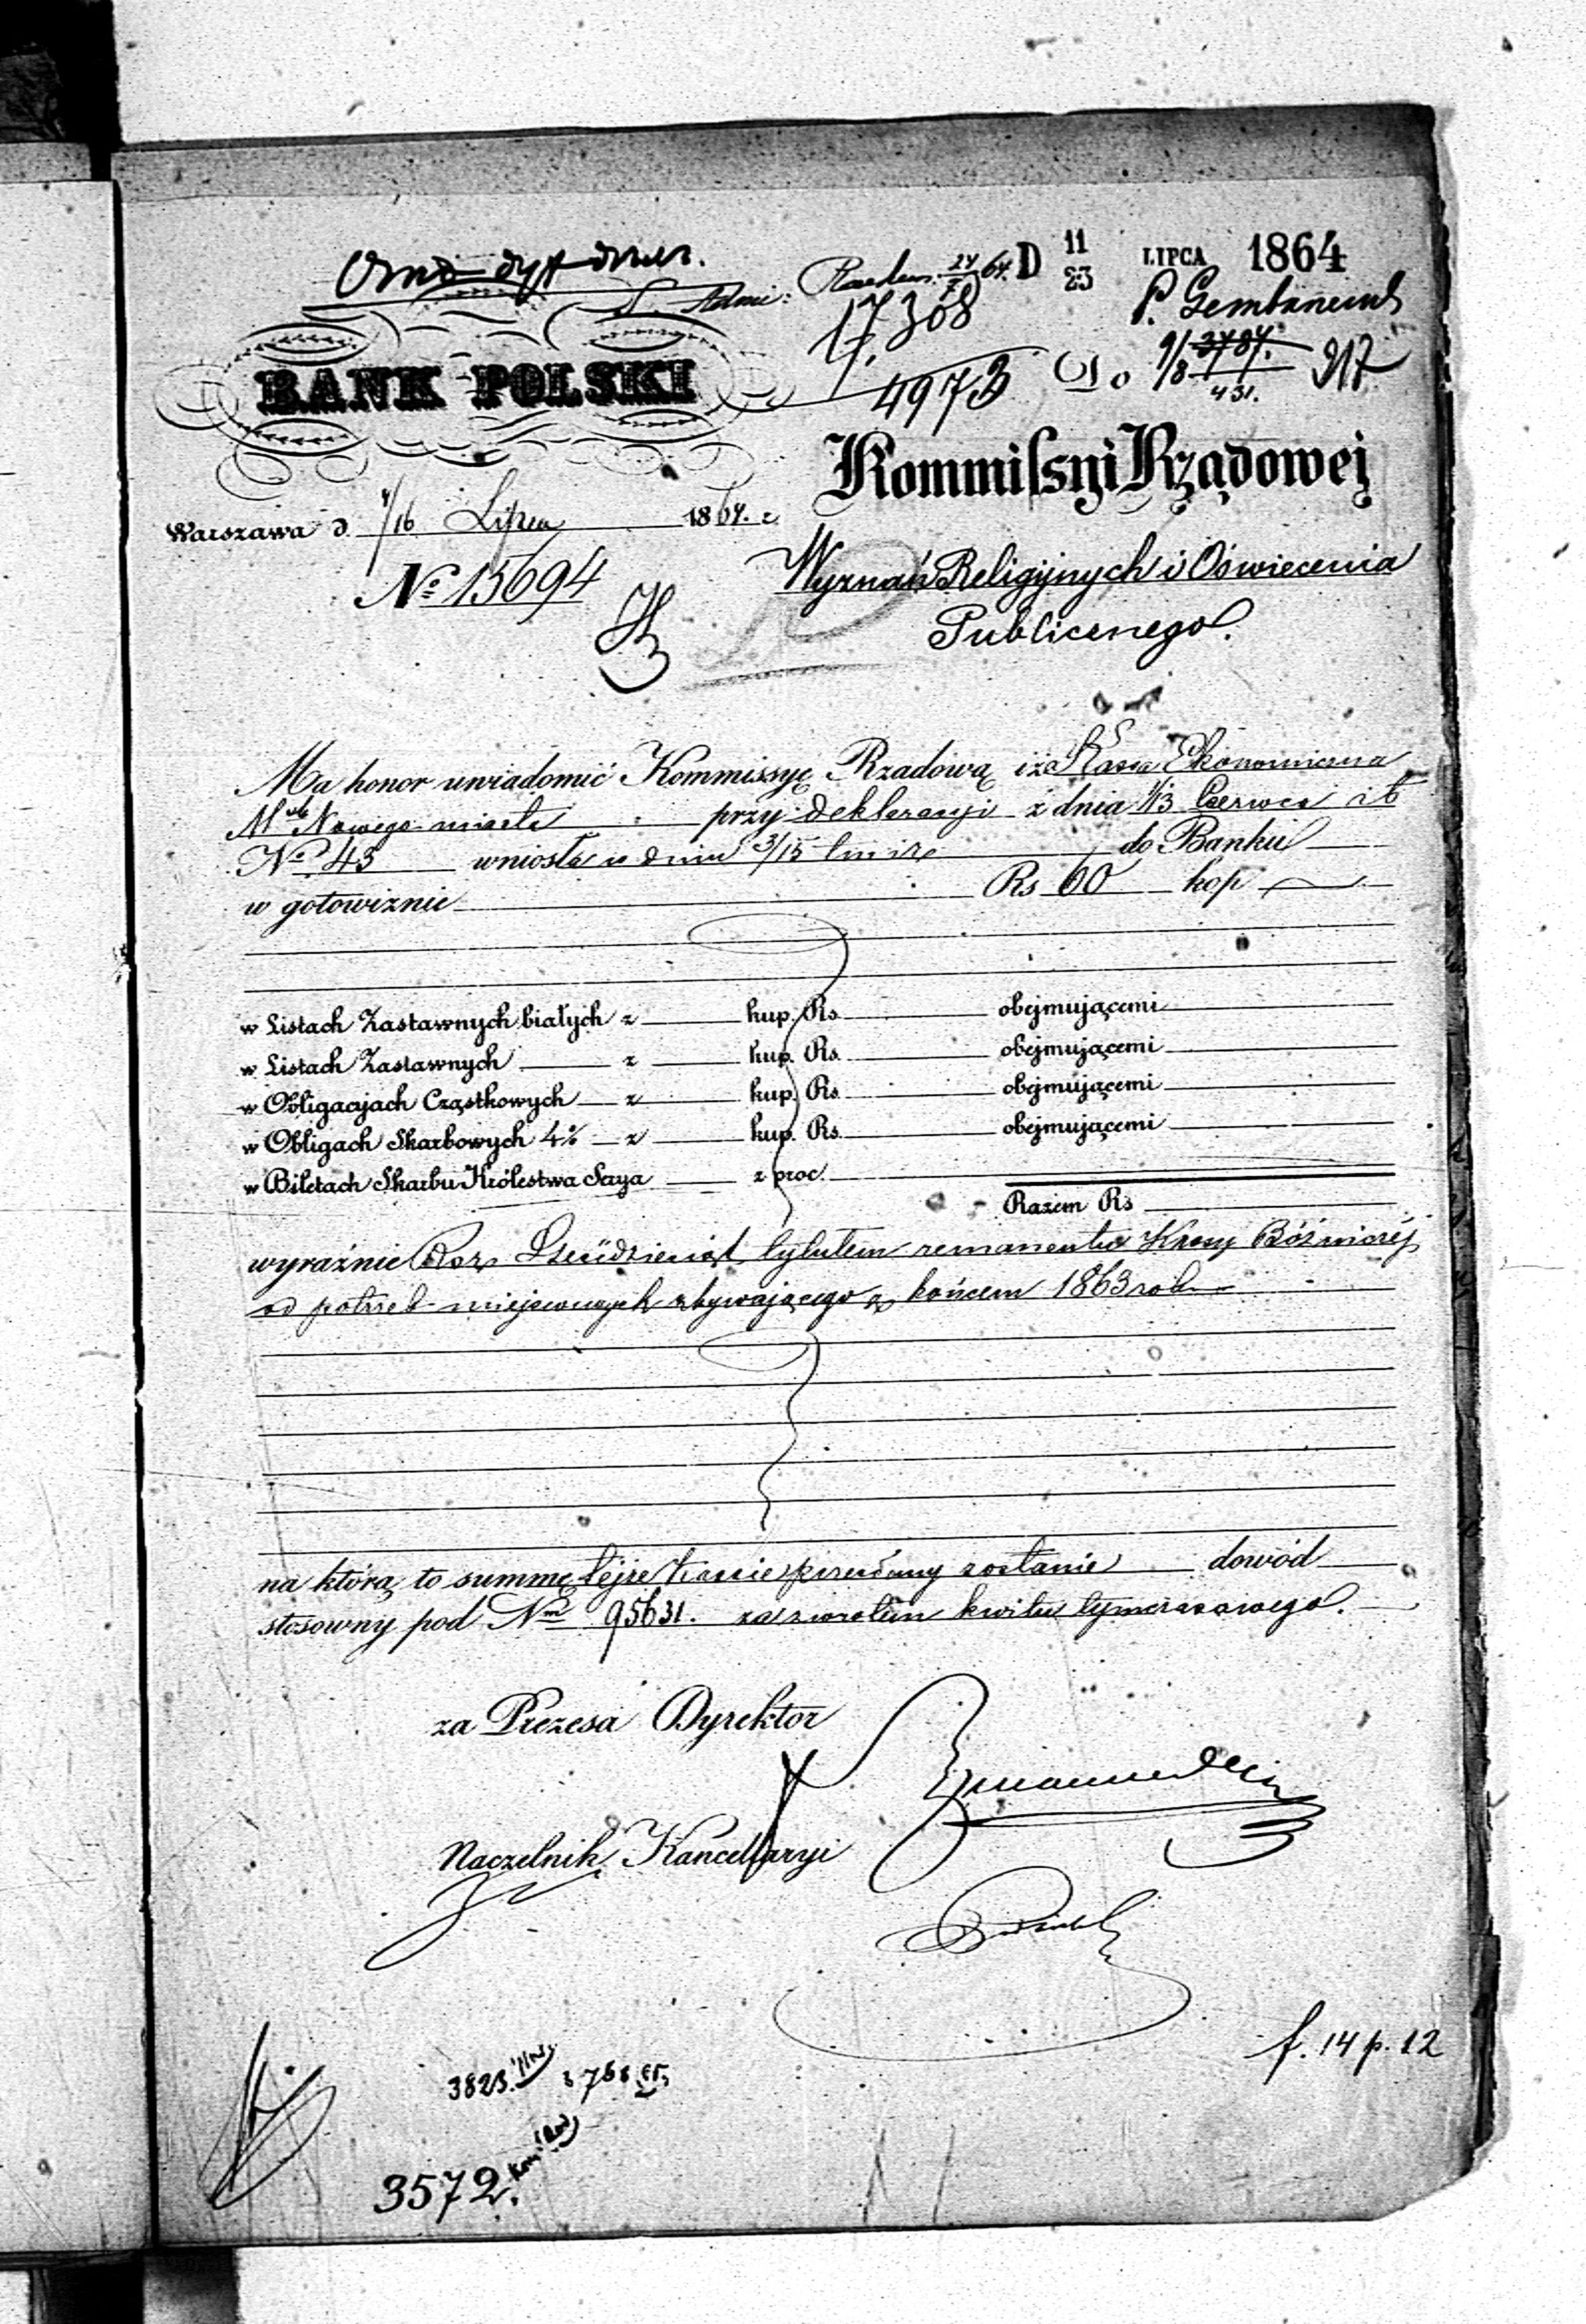 D 11/23 LIPCA 1864
17308
4973
9/8 431. 917
BANK POLSKI
Do
Kommissyi Rządowej
Warszawa d. 4/16 Lipca 1864. r.
Wyznań Religijnych i Oświecenia
№ 15694
Publicznego.
Ma honor uwiadomić Kommissyę Rządową iż Kassa Ekonomiczna
Mta Nowego miasta przy deklaracyi z dnia 1/13 Czerwca r b
№ 43 wniosła w dniu 3/15 do Banku
w gotowiznie Rs 60 kop —
w Listach Zastawnych białych z kup. Rs. obejmującemi
w Listach Zastawnych z kup. Rs. obejmującemi
w Obligacyach Cząstkowych z kup. Rs. obejmującemi
w Obligach Skarbowych 4% z kup. Rs. obejmującemi
w Biletach Skarbu Królestwa Serya z proc.
Razem Rs
wyraźnie Rsr Sześćdziesiąt tytułem remanentu Kassy Bóżniczéj
od potrzeb miejscowych zbywającego z końcem 1863 roku
na którą to summę tejże Kassie przesłany zostanie dowód
stosowny pod Nm 95631. za zwrotem kwitu tymczasowego.
za Prezesa Dyrektor
Naczelnik Kancellaryi
f. 14 p. 12
3823.
3572.